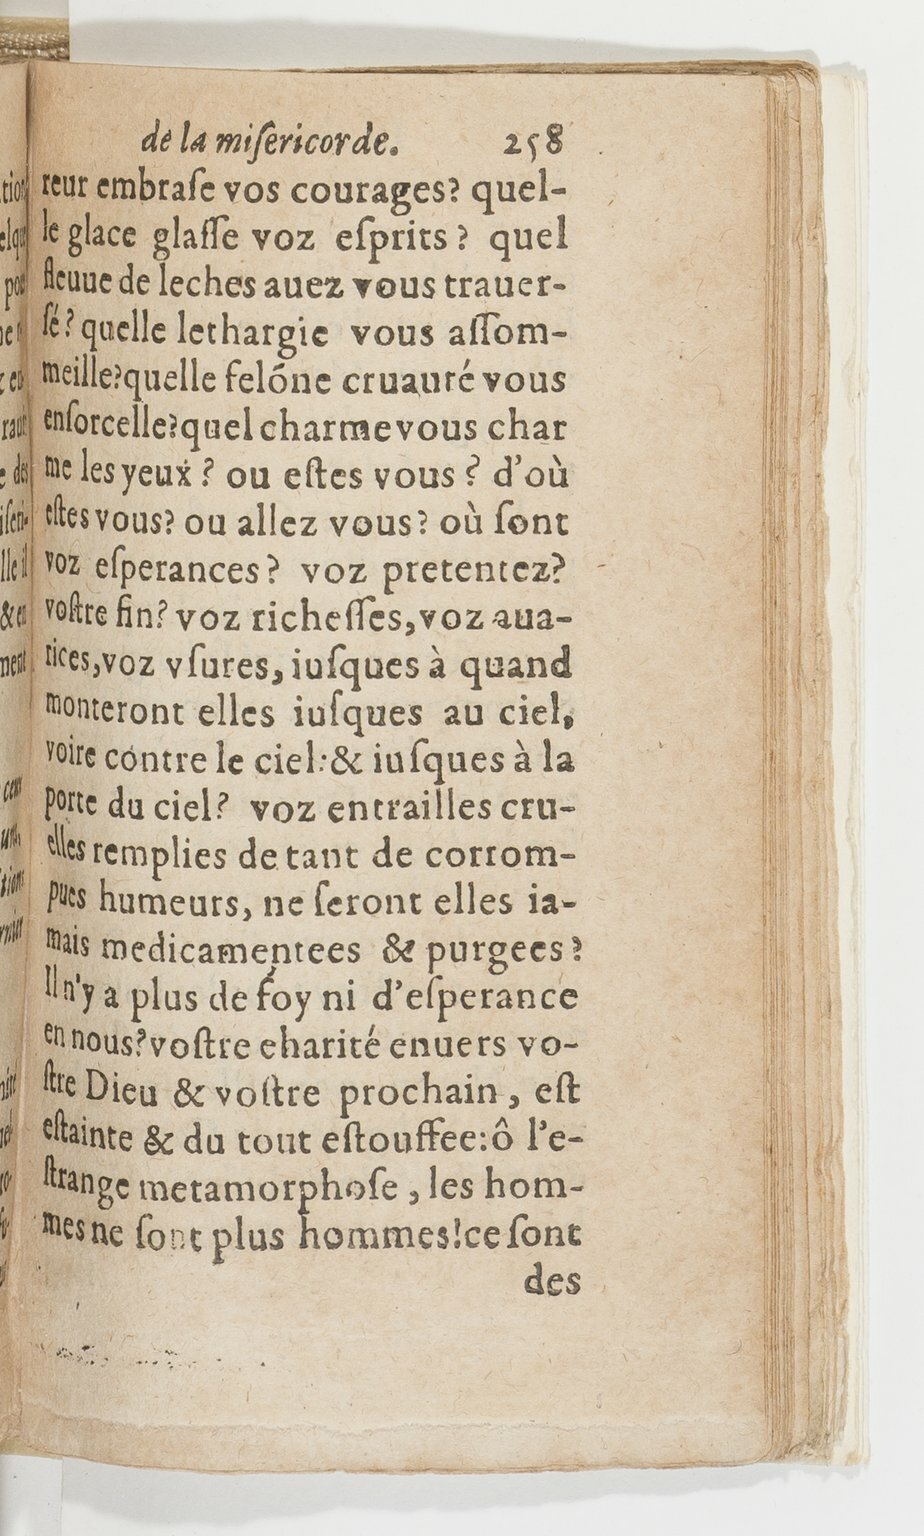 de la miſericorde. 258
reur embraſe vos courages? quel-
le glace glaſſe voz eſprits? quel
fleuue de leches auez vous trauer-
ſé? quelle lethargie vous aſſom-
meille? quelle felóne cruauté vous
enſorcelle? quel charme vous char
me les yeux? ou eſtes vous? d'où
eſtes vous? ou allez vous? où ſont
voz eſperances? voz pretentez?
voſtre fin? voz richeſſes, voz aua-
rices, voz vſures, iuſques à quand
monteront elles iuſques au ciel,
voire contre le ciel: & iuſques à la
porte du ciel? voz entrailles cru-
elles remplies de tant de corrom-
pues humeurs, ne ſeront elles ia-
mais medicamentees & purgees?
Il n'y a plus de foy ni d'eſperance
en nous? voſtre eharité enuers vo-
ſtre Dieu & voſtre prochain, eſt
eſtainte & du tout eſtouffee: ô l'e-
ſtrange metamorphoſe, les hom-
mes ne ſont plus hommes! ce ſont
des